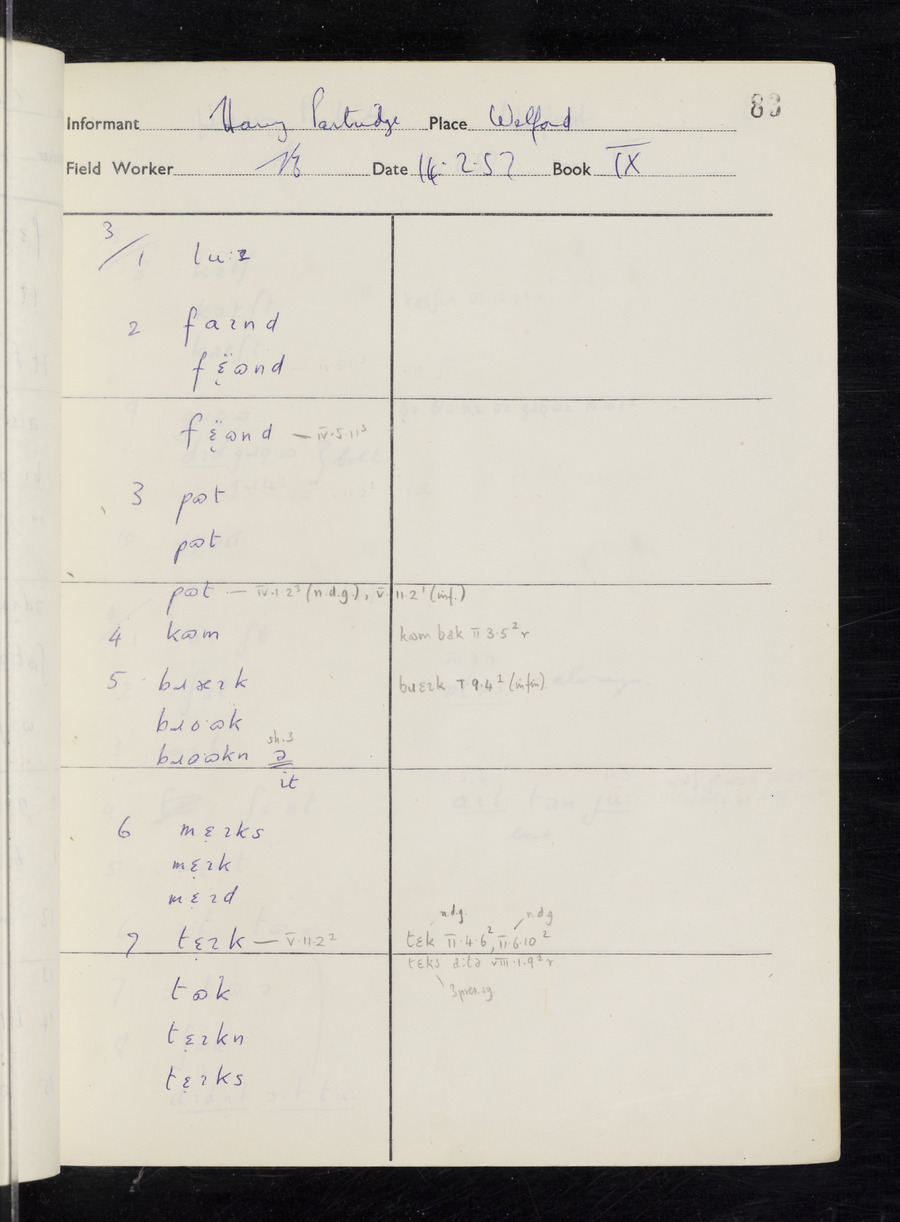 83
Informant Harry Partridge Place Welford
Field Worker Date 14.2.57 Book IX
3/1 lu:z
2 faɪnd
fɛ̣̈ɷnd
fɛ̣̈ɷnd — IV.5.11³
3 pɷt
pɷt
pɷt — IV.1.2³ (n.d.g.), V.11.2¹ (inf.)
4 kɷm kɷm bak II 3.5² r
5 bɹæɪk bɹɛɪk I 9.4² (infin)
bɹo:ɷk
sh.3
bɹoɷkn ə
it
6 mɛ̣ɪks
mɛ̣ɪk
mɛ̣ɪd
n.d.g. n.d.g
7 tɛ̣ɪk — V.11.2² tɛk II.4.6², II.6.10²
tɛks VIII.1.9² r
tɷk 3 pres. sg.
tɛ̣ɪkn
tɛ̣ɪks